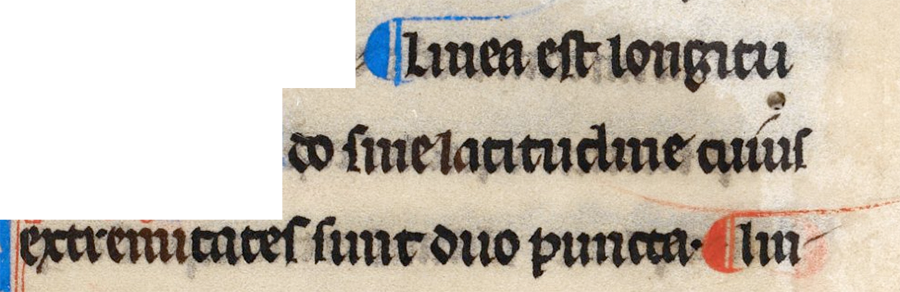 ¶ Linea est longitu
do sine latitudine cuius
extremitates sunt duo puncta. ¶ lin